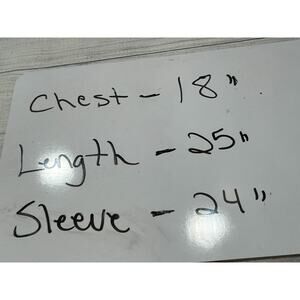 Chest - 18"
Length - 25"
Sleeve - 24"